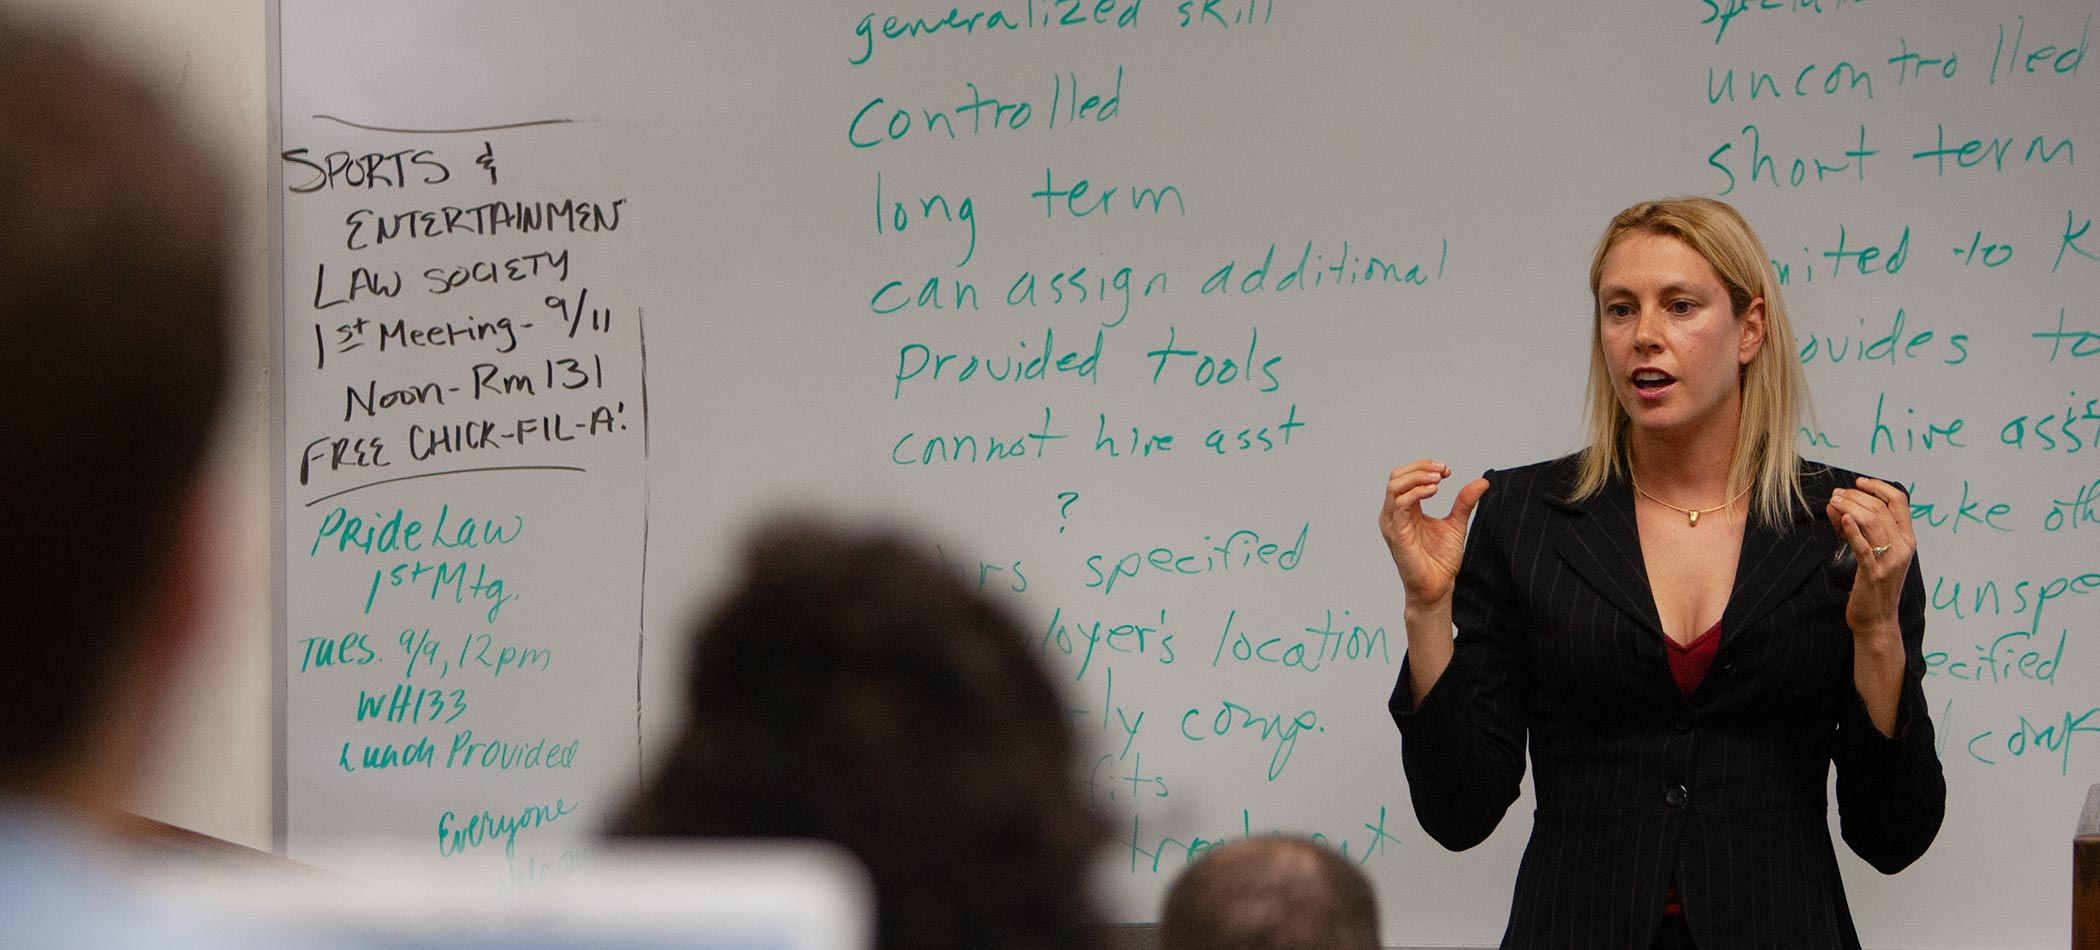 SPORTS &
ENTERTAINMEN
LAW SOCIETY
1st Meeting - 9/11
Noon - Rm 131
FREE CHICK-FIL-A!
Pride Law
1st Mtg.
Tues. 9/9, 12pm
WH133
Lunch Provided
Everyone
generalized skill
Controlled
long term
can assign additional
Provided tools
cannot hire asst
?
hrs specified
loyer's location
ly comp.
fits
uncontrolled
short term
mited to K
ovides to
hire asst
take oth
unspe
ecified
comp